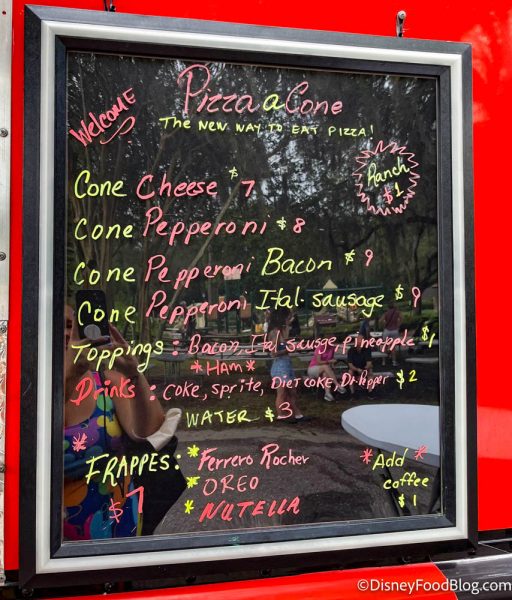 Pizza a Cone
Welcome
The New Way to Eat Pizza!
Ranch
$1
Cone Cheese $7
Cone Pepperoni $8
Cone Pepperoni Bacon $9
Cone Pepperoni Ital. sausage $9
Toppings: Bacon, Ital. sausage, pineapple $1
*HAM*
Drinks: Coke, Sprite, Diet Coke, Dr. Pepper $2
WATER $3
FRAPPES: *Ferrero Rocher
*OREO
*NUTELLA
$7
*Add*
coffee
$1
©DisneyFoodBlog.com